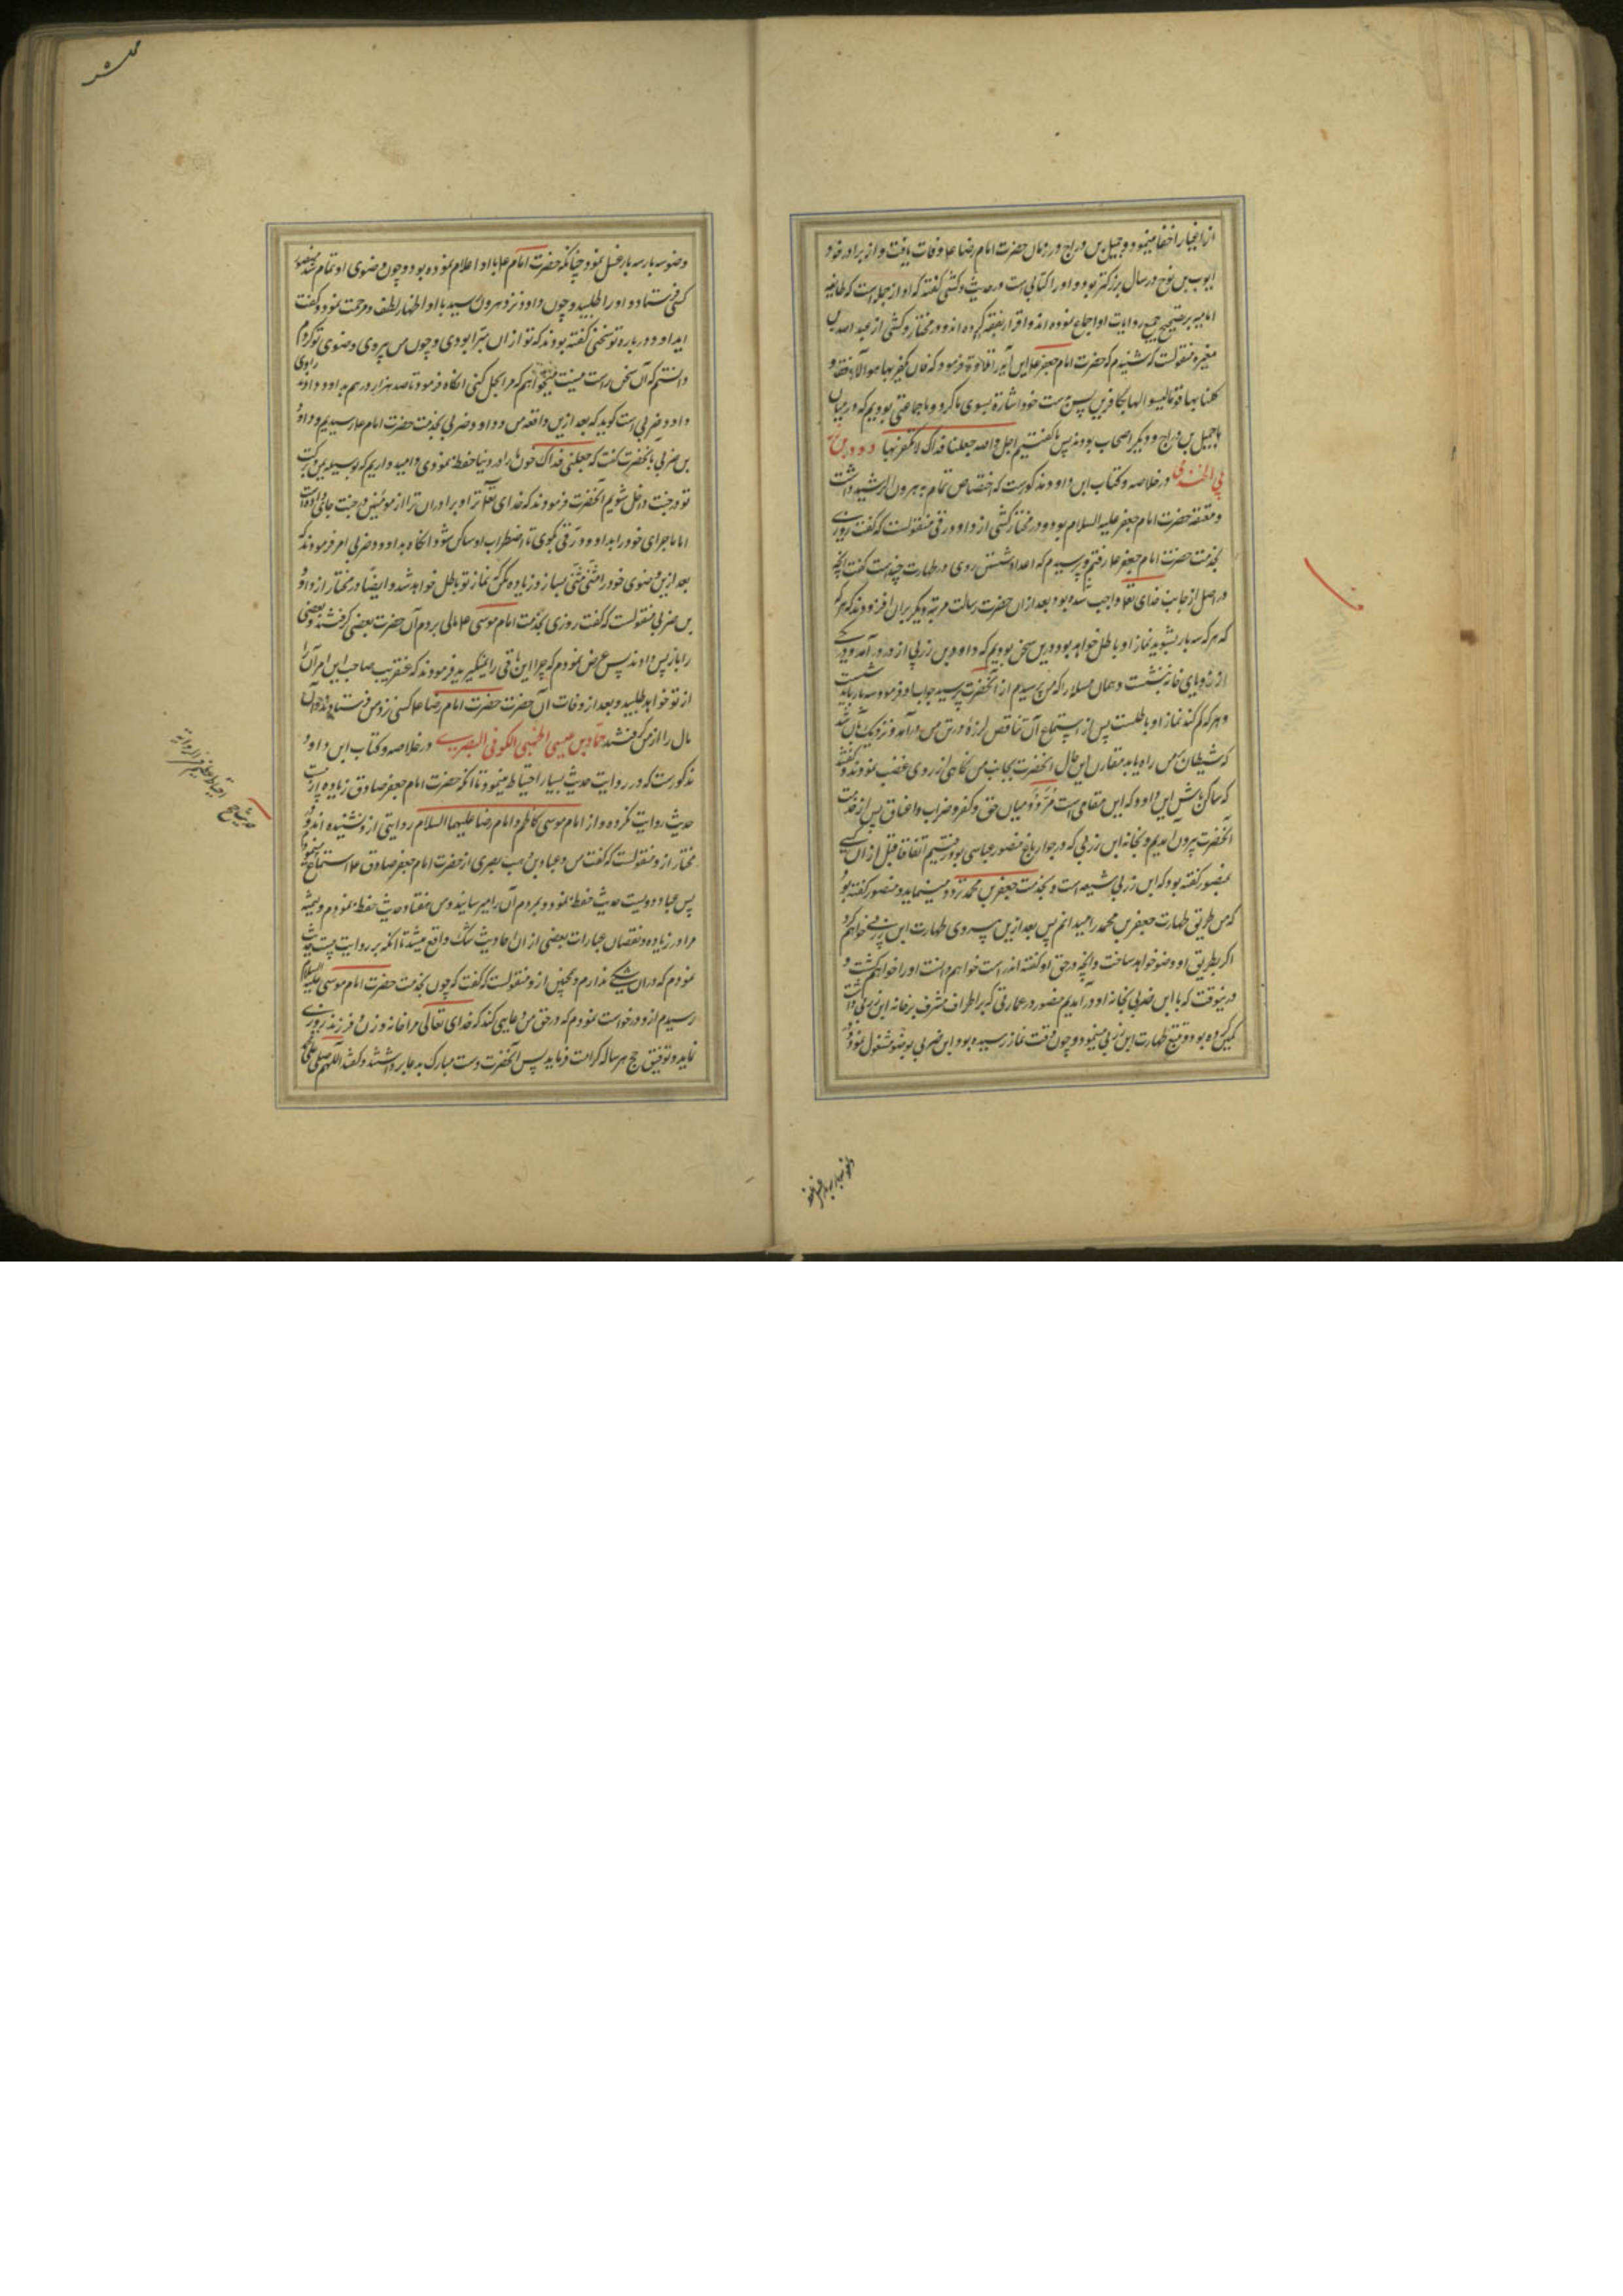 از اغیار اخفا مینمود و جمیل بن دراج در زمان حضرت امام رضا ع وفات یافت و از برادر خود
ایوب بن نوح در سال بزرکتر بود و او را کتابی است در حدیث و کشی کفته که او از جمله است که طایفه
امامیه بر تصحیح جمیع روایات او اجماع نموده اند و اقرار بفقه کرده اند و در مختار کشی از عبد الله بن
مغیره منقولست که شنیدم که حضرت امام جعفر ع این آیه را تلاوة فرمود که فان یکفر بها هؤلاء فقد و
کلنا بها قوما لیسوا بها بکافرین پس بدست خود اشارة بسوی ما کرد و ما جماعتی بودیم که در میان
ما جمیل بن دراج و دیکر اصحاب بودند پس ما کفتیم اجل و الله جعلنا فداک لا نکفر بها داود بن
زربی الخندقی در خلاصه و کتاب ابن داود مذکورست که اختصاص تمام به هرون الرشید داشت
و معتقد حضرت امام جعفر علیه السلام بود و در مختار کشی از داود رقی منقولست که کفت روزی
بخدمت حضرت امام جعفر ع رفتم و پرسیدم که اعداد شستن روی در طهارت چندست کفت آنچه
در اصل از جانب خدای تع واجب شده بود بعد از آن حضرت رسالت مرتبه دیکر بران افزودند که هر که
که هر که سه بار بشوید نماز او باطل خواهد بود درین سخن بودیم که داود بن زربی از در درآمد و در یکی
از زوایای خانه بنشست و همان مسله را که من پرسیدم از آنحضرت پرسید جواب او فرمود سه بار باید شست
و هر که کم کند نماز او باطلست پس از استماع آن تناقض لرزه در تن من درآمد و نزدیک بآن شد
که شیطان بمن راه یابد مقارن این حال آنحضرت بجانب من نکاهی از روی غضب نمودند و کفتند
که ساکن باش ای داود که این مقامی است میان حق و کفر و ضراب و اعناق پس از خدمت
آنحضرت بیرون آمدیم و خانه ابن زربی که در جوار باغ منصور عباسی بود رفتیم اتفاقا قبل از آن کسی
بمنصور کفته بود که ابن زربی شیعه است و بخدمت جعفر بن محمد تردد مینماید و منصور کفته بود
که من طریق طهارت جعفر بن محمد را میدانم پس بعد ازین پیروی طهارت ابن زربی خواهم کرد
اکر بطریق او وضو خواهد ساخت و آنچه در حق او کفته اند راست خواهم دانست او را خواهم کشت و
درینوقت که با ابن ضربی بخانه او درآمدیم منصور در عمارتی که بر اطراف مشرف بر خانه ابن زربی داشت
کمین کرده بود و تتبع طهارت ابن زربی مینمود و چون وقت نماز رسیده بود ابن ضربی بوضو مشغول بود و
وضو سه بار سه بار غسل نمود چنانکه حضرت امام ع با او اعلام نموده بود و چون وضوی او تمام شد منصور
کسی فرستاد و او را طلبید و چون داود نزد هرون رسید با او اظهار لطف و مرحمت نمود و کفت
ای داود در باره تو سخنی کفته بودند که تو از آن مبرا بودی و چون من پیروی وضوی تو کردم
دانستم که آن سخن راست نیست میخواهم که مرا بحل کنی آنکاه فرمود تا صد هزار درهم بداود دادند راوی
داود ضربی است کوید که بعد ازین واقعه من و داود ضربی بخدمت حضرت امام ع رسیدیم و داود
بن ضربی بانحضرت کفت که جعلنی فداک خون ما را در دنیا حفظ نمودی و امیدواریم که بوسیله یمن برکت
تو در جنت داخل شویم آنحضرت فرمودند که خدای تع ترا و برادران ترا از مؤمنین در جنت جای دهاد
اما ماجرای خود را بداود رقی بکوی تا اضطراب او ساکن شود آنکاه بداود ضربی امر فرمودند که
بعد ازین وضوی خود را مثنی مثنی بساز و زیاده مکن که نماز تو باطل خواهد شد و ایضا در مختار از داود
بن ضربی منقولست که کفت روزی بخدمت امام موسی ع مالی بردم آن حضرت بعضی کرفتند و بعضی
را باز پس دادند پس عرض نمودم که چرا این باقی را نمیکیرید فرمودند که عنقریب صاحب این امر آنرا
از تو خواهد طلبید و بعد از وفات آن حضرت حضرت امام رضا ع کسی نزد من فرستادند و آن
مال را از من کرفتند حماد بن عیسی الجهنی الکوفی البصری در خلاصه و کتاب ابن داود
مذکورست که در روایت حدیث بسیار احتیاط مینمود تا آنکه حضرت امام جعفر صادق زیاده از بیست
حدیث روایت نکرده و از امام موسی کاظم و امام رضا علیهما السلام روایتی از و نشنیده اند و در
مختار از و منقولست که کفت من و عباد بن صهیب بصری از حضرت امام جعفر صادق ع استماع مینمودیم
پس عباد دویست حدیث حفظ نمود و بمردم آن را میرسانید و من هفتاد حدیث حفظ نمودم و همیشه
مرا در زیاده و نقصان عبارات بعضی از آن احادیث شک واقع میشد تا آنکه بر روایت بیست حدیث
نمودم که در آن شکی ندارم و همچنین از و منقولست که کفت که چون بخدمت حضرت امام موسی علیه السلام
رسیدم از و درخواست نمودم که در حق من دعایی کند که خدای تعالی مرا خانه و زن و فرزند روزی
نماید و توفیق حج هر ساله کرامت فرماید پس آنحضرت دست مبارک بدعا برداشتند و کفتند اللهم صل علی محمد